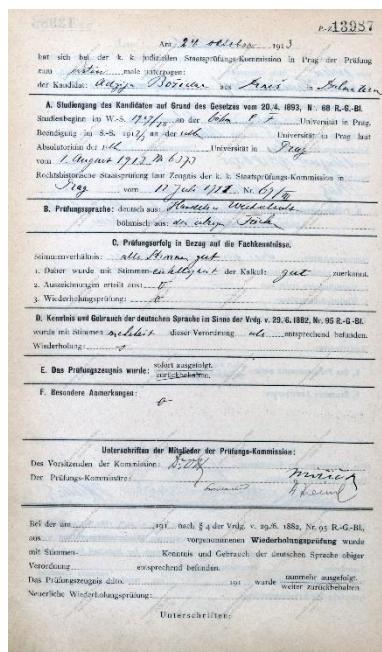 P-J 13987
Am 24 oktober 1913
hat sich bei der k. k. judiziellen Staatsprüfungs-Kommission in Prag der Prüfung
zum ersten male unterzogen:
der Kandidat Božidar aus in Dalmatien
A. Studiengang des Kandidaten auf Grund des Gesetzes vom 20./4. 1893, Nr. 68 R.-G.-Bl.
Studienbeginn im W.-S. an der böhm Universität in Prag.
Beendigung im S.-S. an der Universität in Prag laut
Absolutorium der Universität in Prag
vom 1. August 1912 No 6373
Rechtshistorische Staatsprüfung laut Zeugnis der k. k. Staatsprüfungs-Kommission in
Prag vom Juli Nr.
B. Prüfungssprache: deutsch aus:
böhmisch aus: den übrigen
C. Prüfungserfolg in Bezug auf die Fachkenntnisse.
Stimmenverhältnis: alle Stimmen gut
1. Daher wurde mit Stimmen-einhelligkeit der Kalkul: gut zuerkannt.
2. Auszeichnungen erteilt aus:
3. Wiederholungsprüfung:
D. Kenntnis und Gebrauch der deutschen Sprache im Sinne der Vrdg. v. 29./6. 1882, Nr. 95 R.-G.-Bl.
wurde mit Stimmen mehrheit dieser Verordnung als entsprechend befunden.
Wiederholung:
E. Das Prüfungszeugnis wurde: sofort ausgefolgt.
zurückbehalten.
F. Besondere Anmerkungen:
Unterschriften der Mitglieder der Prüfungs-Kommission:
Des Vorsitzenden der Kommission:
Der Prüfungs-Kommissäre:
Bei der am 191 nach § 4 der Vrdg. v. 29./6. 1882, Nr. 95 R.-G.-Bl.,
aus vorgenommenen Wiederholungsprüfung wurde
mit Stimmen- Kenntnis und Gebrauch der deutschen Sprache obiger
Verordnung entsprechend befunden.
Das Prüfungszeugnis ddto. 191 wurde nunmehr ausgefolgt.
weiter zurückbehalten.
Neuerliche Wiederholungsprüfung:
Unterschriften: